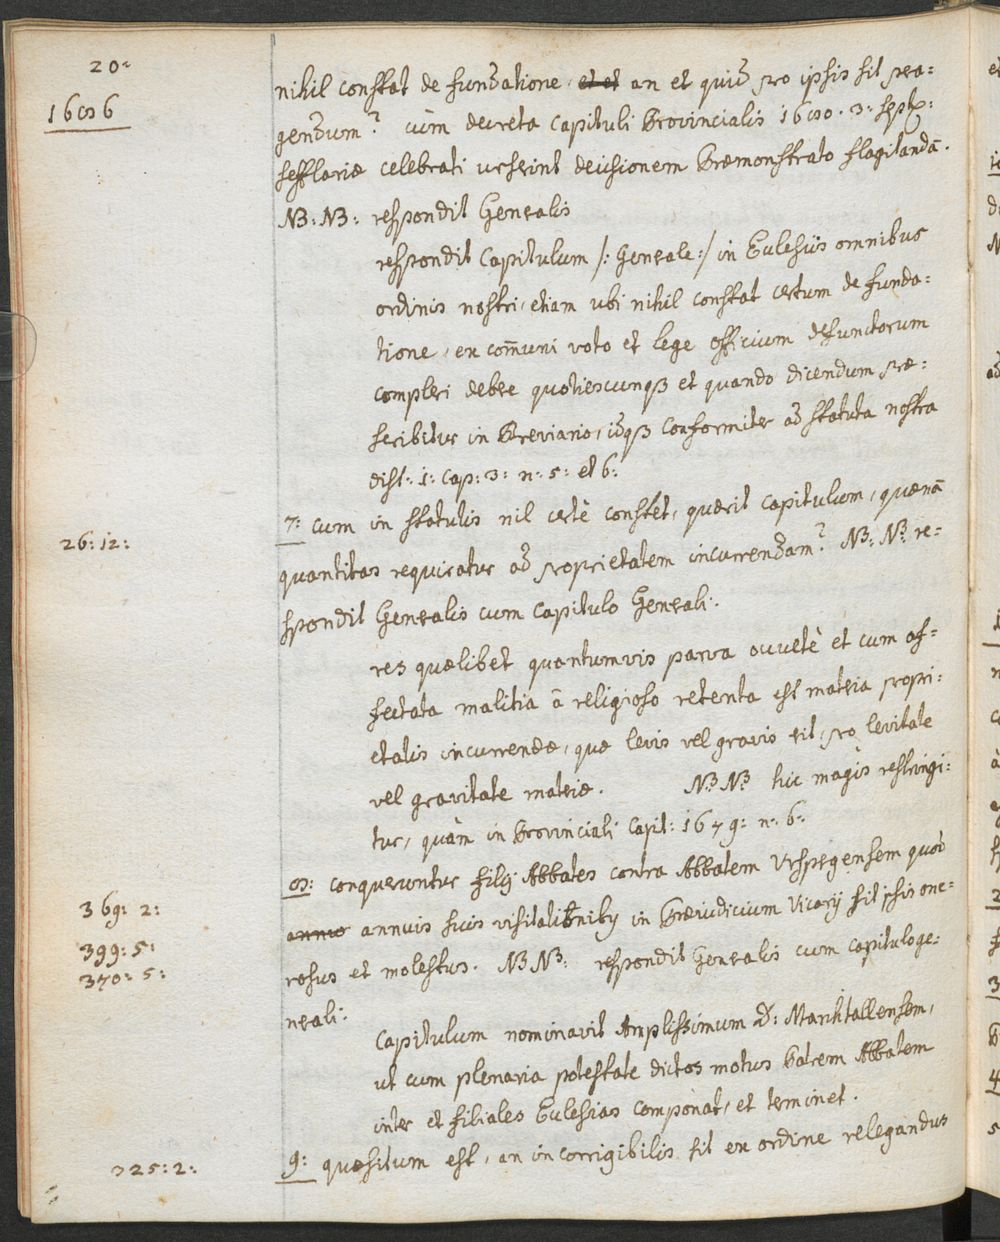 20.
1686
nihil constat de fundatione, et et an et quid pro ipsis sit pera=
gendum? cùm decreta capituli Provincialis 1680. 3. Septbr:
sefflariæ celebrati urserint decisionem Præmonstrato flagitandã.
NB: NB: respondit Generalis
respondit Capitulum /: Generale :/ in Ecclesiis omnibus
ordinis nostri, etiam ubi nihil constat certum de funda=
tione, ex com̃uni voto et lege officium defunctorum
compleri debere quotiescunq3 et quando dicendum præ=
scribitur in Breviario, idq3 conformiter ad statuta nostra
dist: 1: cap: 3: n: 5: et 6:
26: 12:
7: cum in statutis nil certè constet, quærit capitulum, quænã
quantitas requiratur ad proprietatem incurrendam? NB: NB re=
spondit Generalis cum Capitulo Generali:
res quælibet quantumvis parva occultè et cum af=
fectata malitia â religioso retenta est materia propri=
etatis incurrendæ, quæ levis vel gravis erit, pro levitate
vel gravitate materiæ. NB NB hic magis restringi=
tur, quàm in Provinciali Capit: 1679: n: 6:
369: 2:
399: 5:
370: 5:
8: conqueruntur filij Abbates contra Abbatem Urspergensem quod
annuo annuis suis visitationibq in Præiudicium Vicarij sit ipsis one=
rosus et molestus. NB NB: respondit Generalis cum capitulo ge:
nerali:
Capitulum nominavit Amplissimum D: Marchtallensem,
ut cum plenaria potestate dictos motus Patrem Abbatem
inter et filiales Ecclesias componat, et terminet.
325: 2:
9: quæsitum est, an incorrigibilis sit ex ordine relegandus